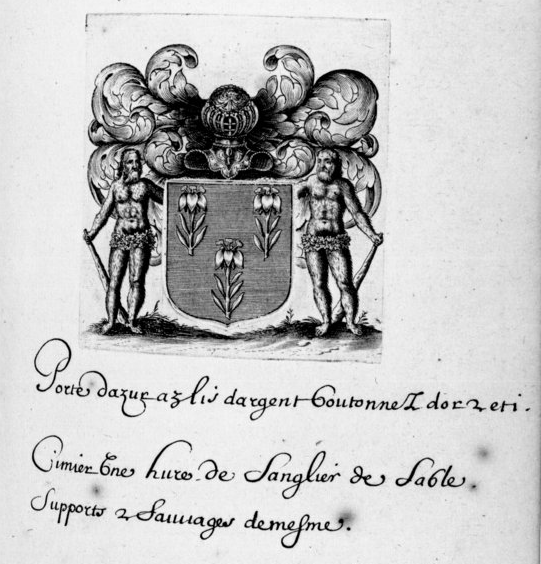 Porte dazur a3 lis dargent boutonnez dor 2 et i.
Cimier Une hure de Sanglier de Sable.
Supports 2 Sauuages demesme.